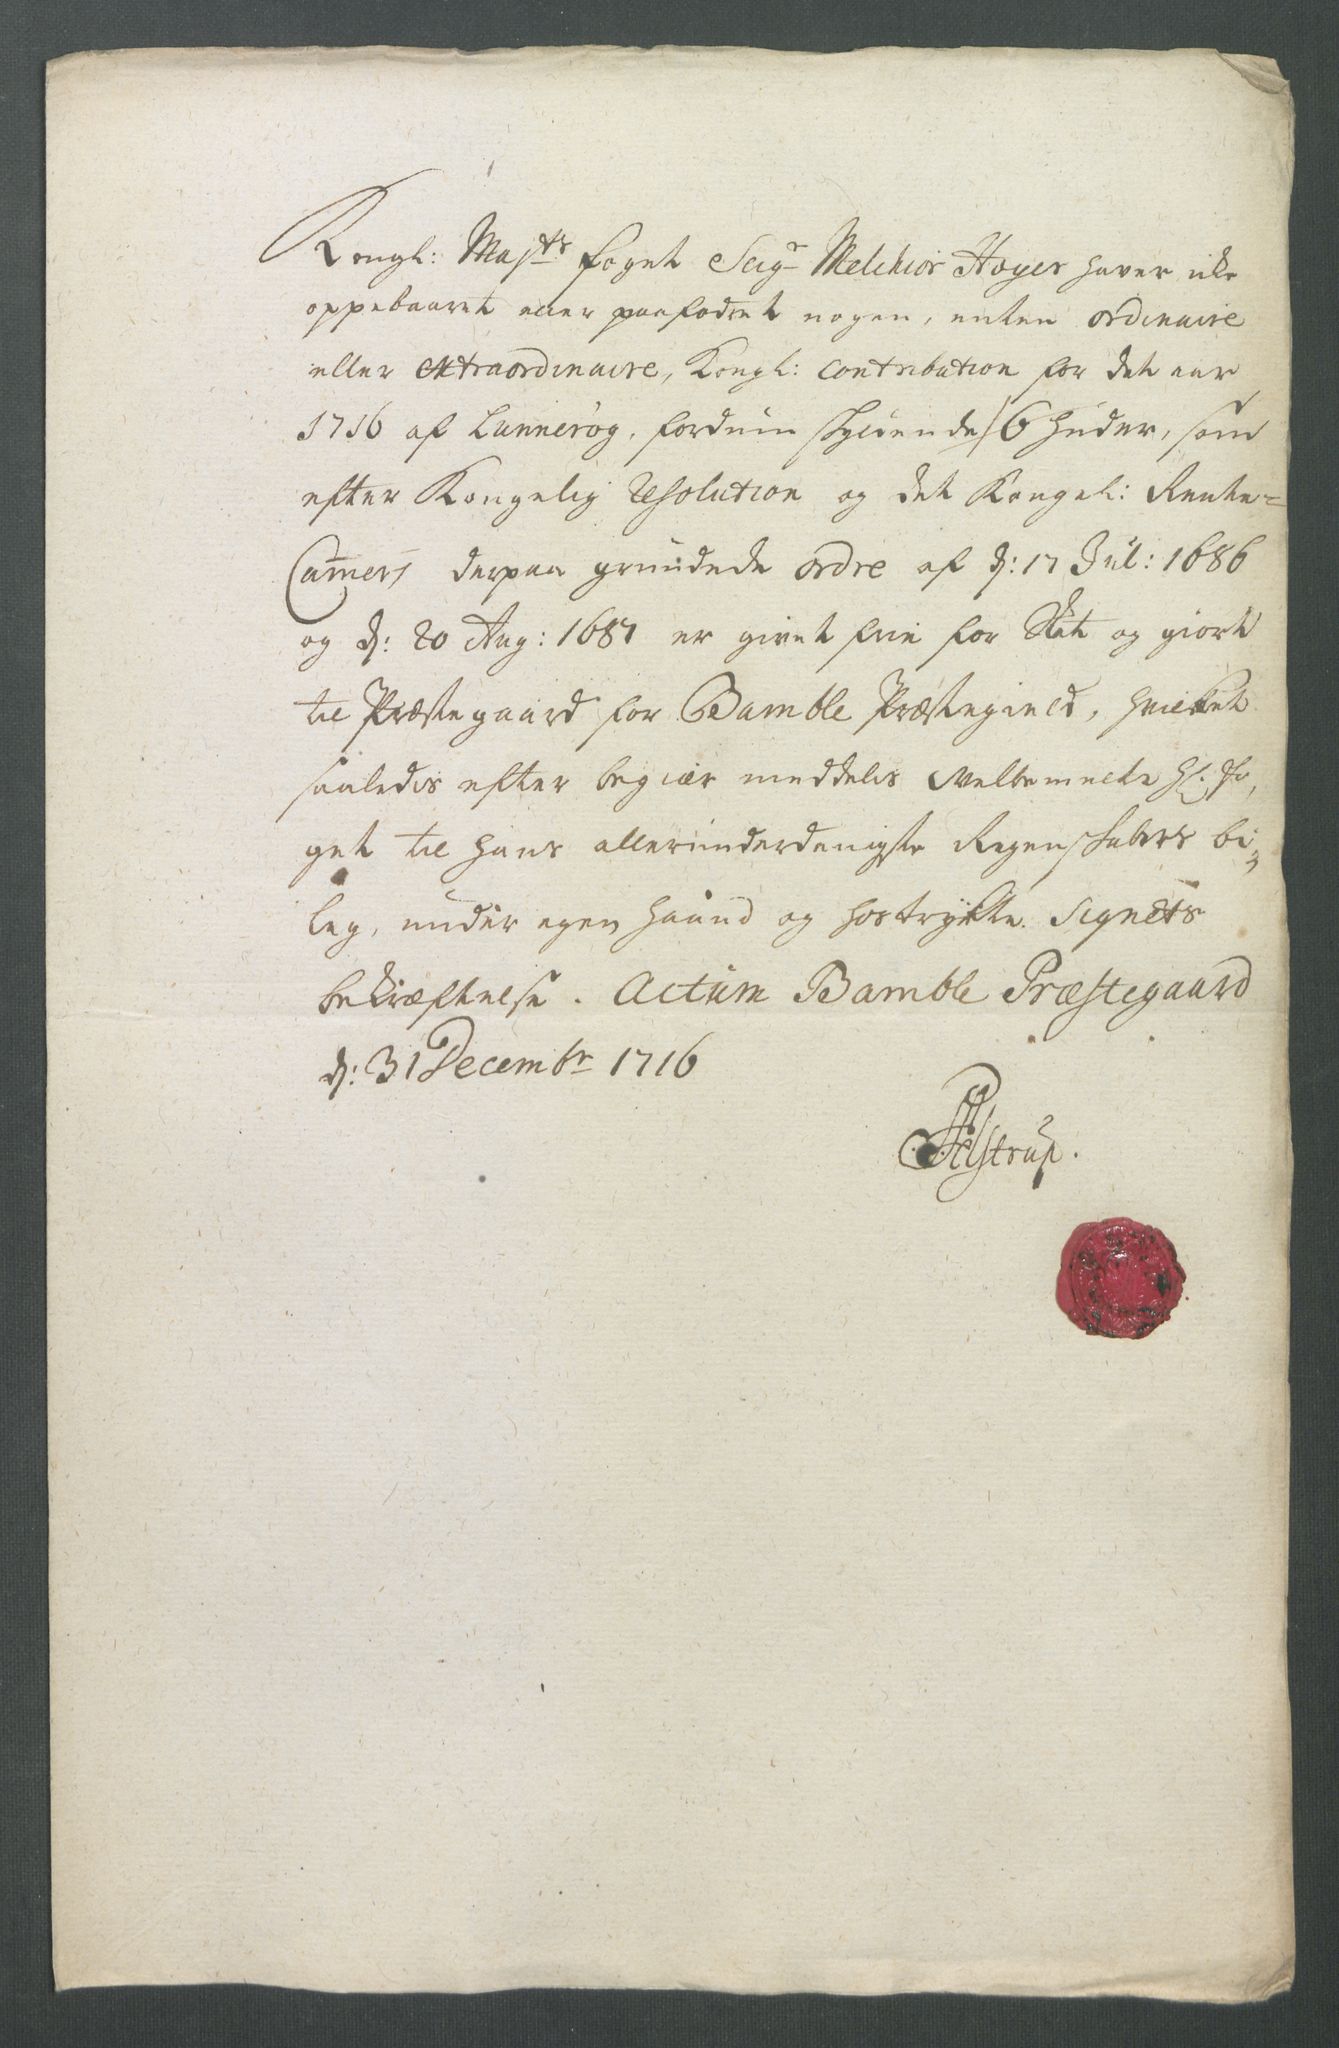 Kongl: Maj:ts foget Seig:r Melchior Høyer haver icke
oppebaaret eller paafodret nogen, enten ordinaire
eller extraordinaire, Kongl: contribution for det aar
1716 af Lunnerøg, fordum skyldende 6 huder, som
efter Kongelig resolution og det Kongel: Rente=
Camers derpaa grundede ordre af d: 17 Jul: 1686
og d: 20 Aug: 1687 er givet frie for Skat og giort
til Præstegaard for Bamble Præstegield, hvilket
saaledis efter begiær meddelis Velbemelte Hr. fo,
get til hans allerunderdanigste Regenskabers bi,
leg, under egen haand og hostrykte Signets
bekræftelse. Actum Bamble Præstegaard
d: 31 Decembr 1716